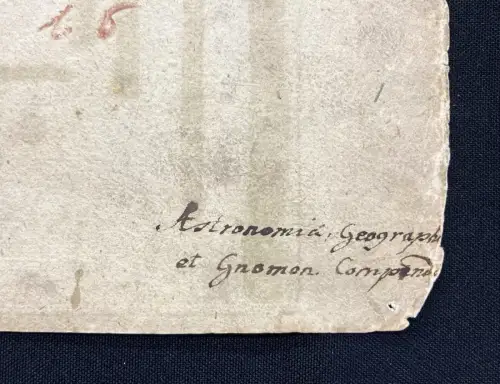 16
Astronomiæ, Geograph
et Gnomon. Compend